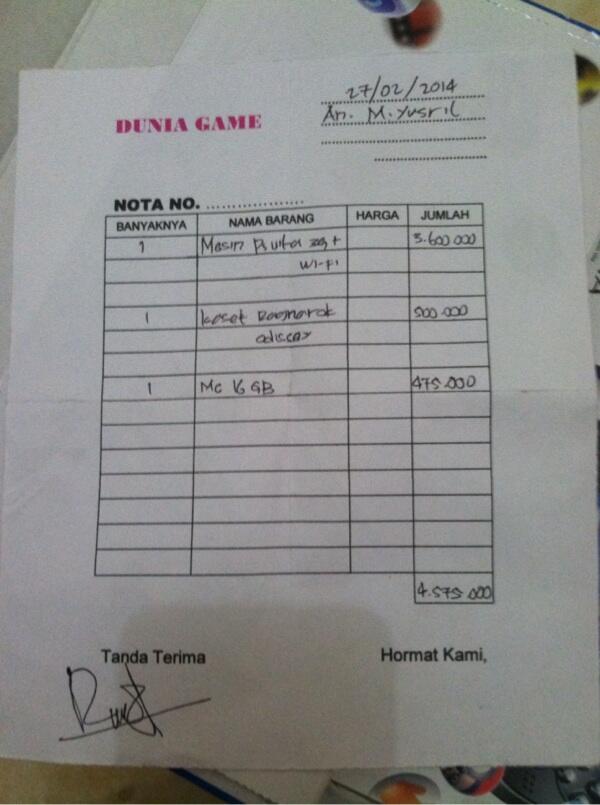 27/02/2014
DUNIA GAME
An. M. Yusril
NOTA NO. ....................
BANYAKNYA NAMA BARANG HARGA JUMLAH
1 Mesin Ps vita 3g + 3.600.000
Wi-Fi
1 kaset Ragnarok 500.000
1 Mc 16 GB 475.000
4.575.000
Tanda Terima Hormat Kami,